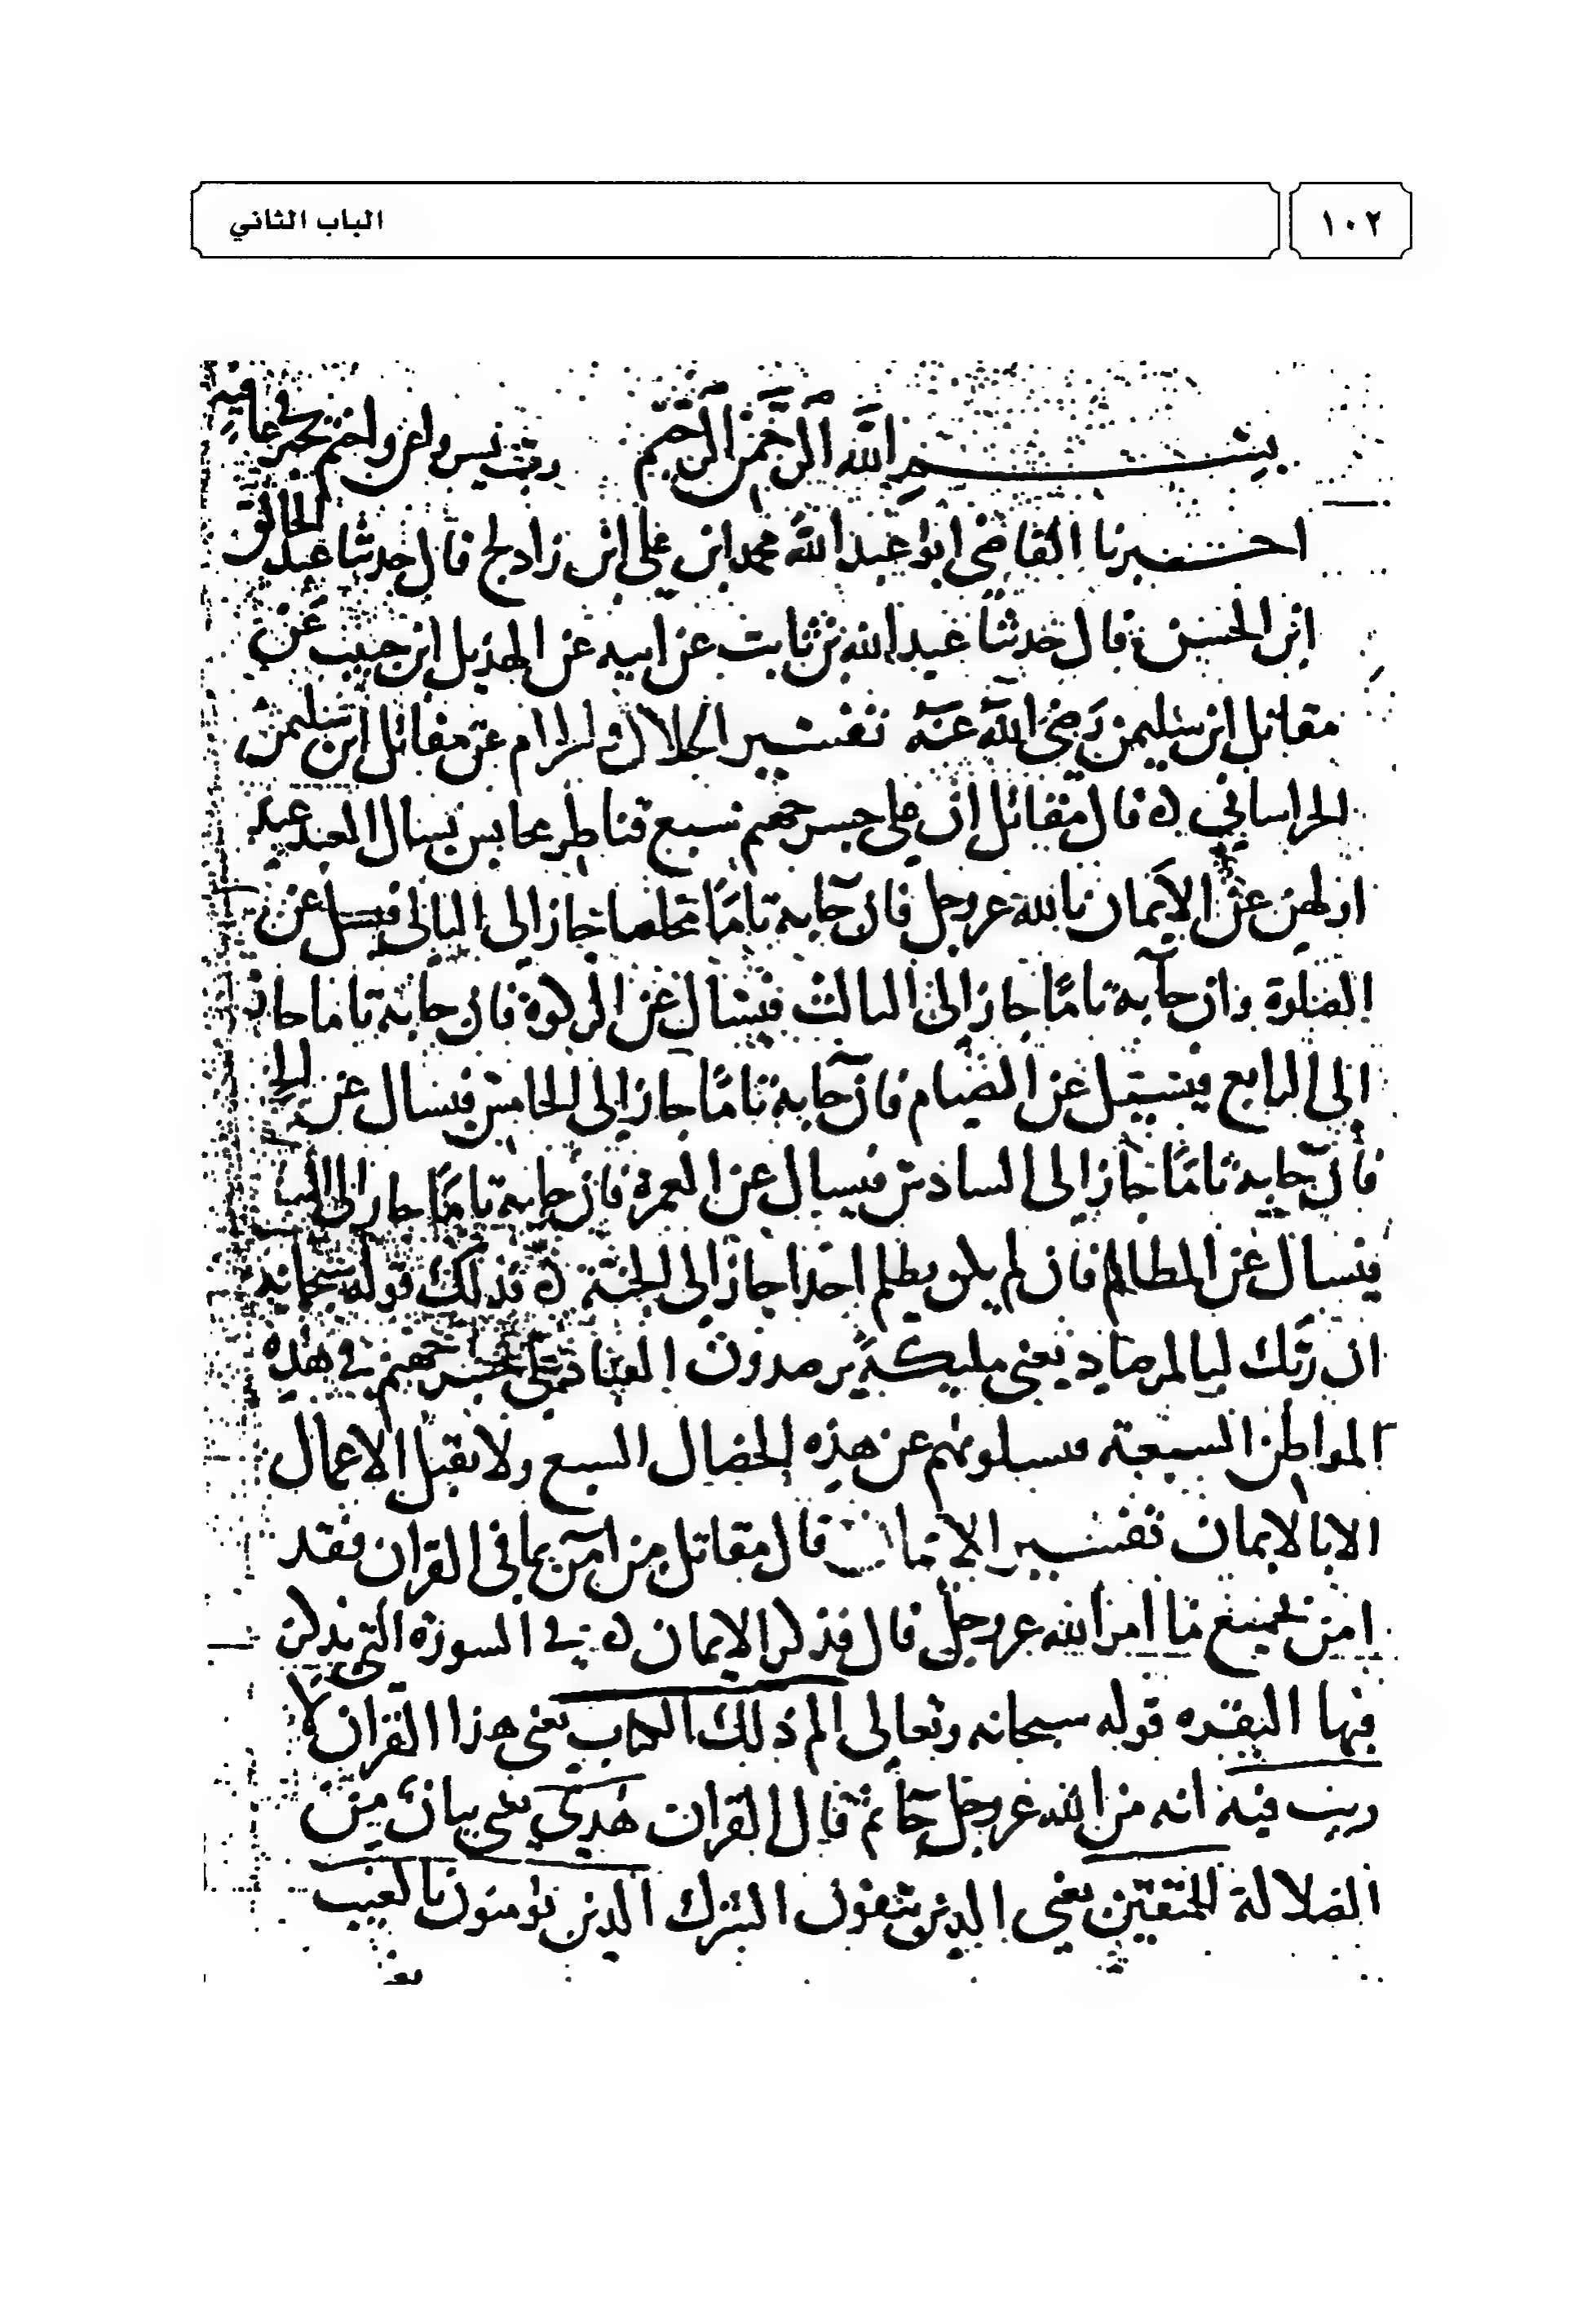 ١٠٢
الباب الثاني
بسم الله الرحمن الرحيم رب يسر واعن واختم بخير في عافيه
اخبرنا القاضي ابو عبد الله محمد ابن علي ابن زادلج قال حدثنا عبد الخالق
ابن الحسن قال حدثنا عبد الله بن ثابت عن ابيه عن الهذيل ابن حبيب عن
مقاتل ابن سليمن رضي الله عنه تفسير الحلال والحرام عن مقاتل ابن سليمن
الخراساني ه قال مقاتل ان على جسر جهنم سبع قناطر محابس يسال العبد عند
اولهن عن الايمان بالله عز وجل فان جا به تاما مخلصا جاز الى الثاني فيسل عن
الصلوة وان جا به تاما جاز الى الثالث فيسال عن الزكوة فان جا به تاما جاز
الى الرابع فيسيل عن الصيام فان جا به تاما جاز الى الخامس فيسال عن الحج
فان جا به تاما جاز الى السادس فيسال عن العمرة فان جا به تاما جاز الى
فيسال عن المظالم فان لم يظلم احدا جاز الى الجنة ه فذلك قوله سبحانه
ان ربك لبالمرصاد يعني مليكة يرصدون العباد على جسر جهنم في هذه
المواطن السبعة فيسلونهم عن هذه الخصال السبع ولا تقبل الاعمال
الا بالايمان تفسير الايمان قال مقاتل من امن بما في القران فقد
امن بجميع ما امر الله عز وجل قال فذكر الايمان ه في السورة التي يذكر
فيها البقره قوله سبحانه وتعالى الم ذلك الكتاب يعني هذا القران لا
ريب فيه انه من الله عز وجل جا ثم قال القران هدى يعني بيان من
الضلالة للمتقين يعني الذين يتقون الشرك الذين يومنون بالغيب
يعـ